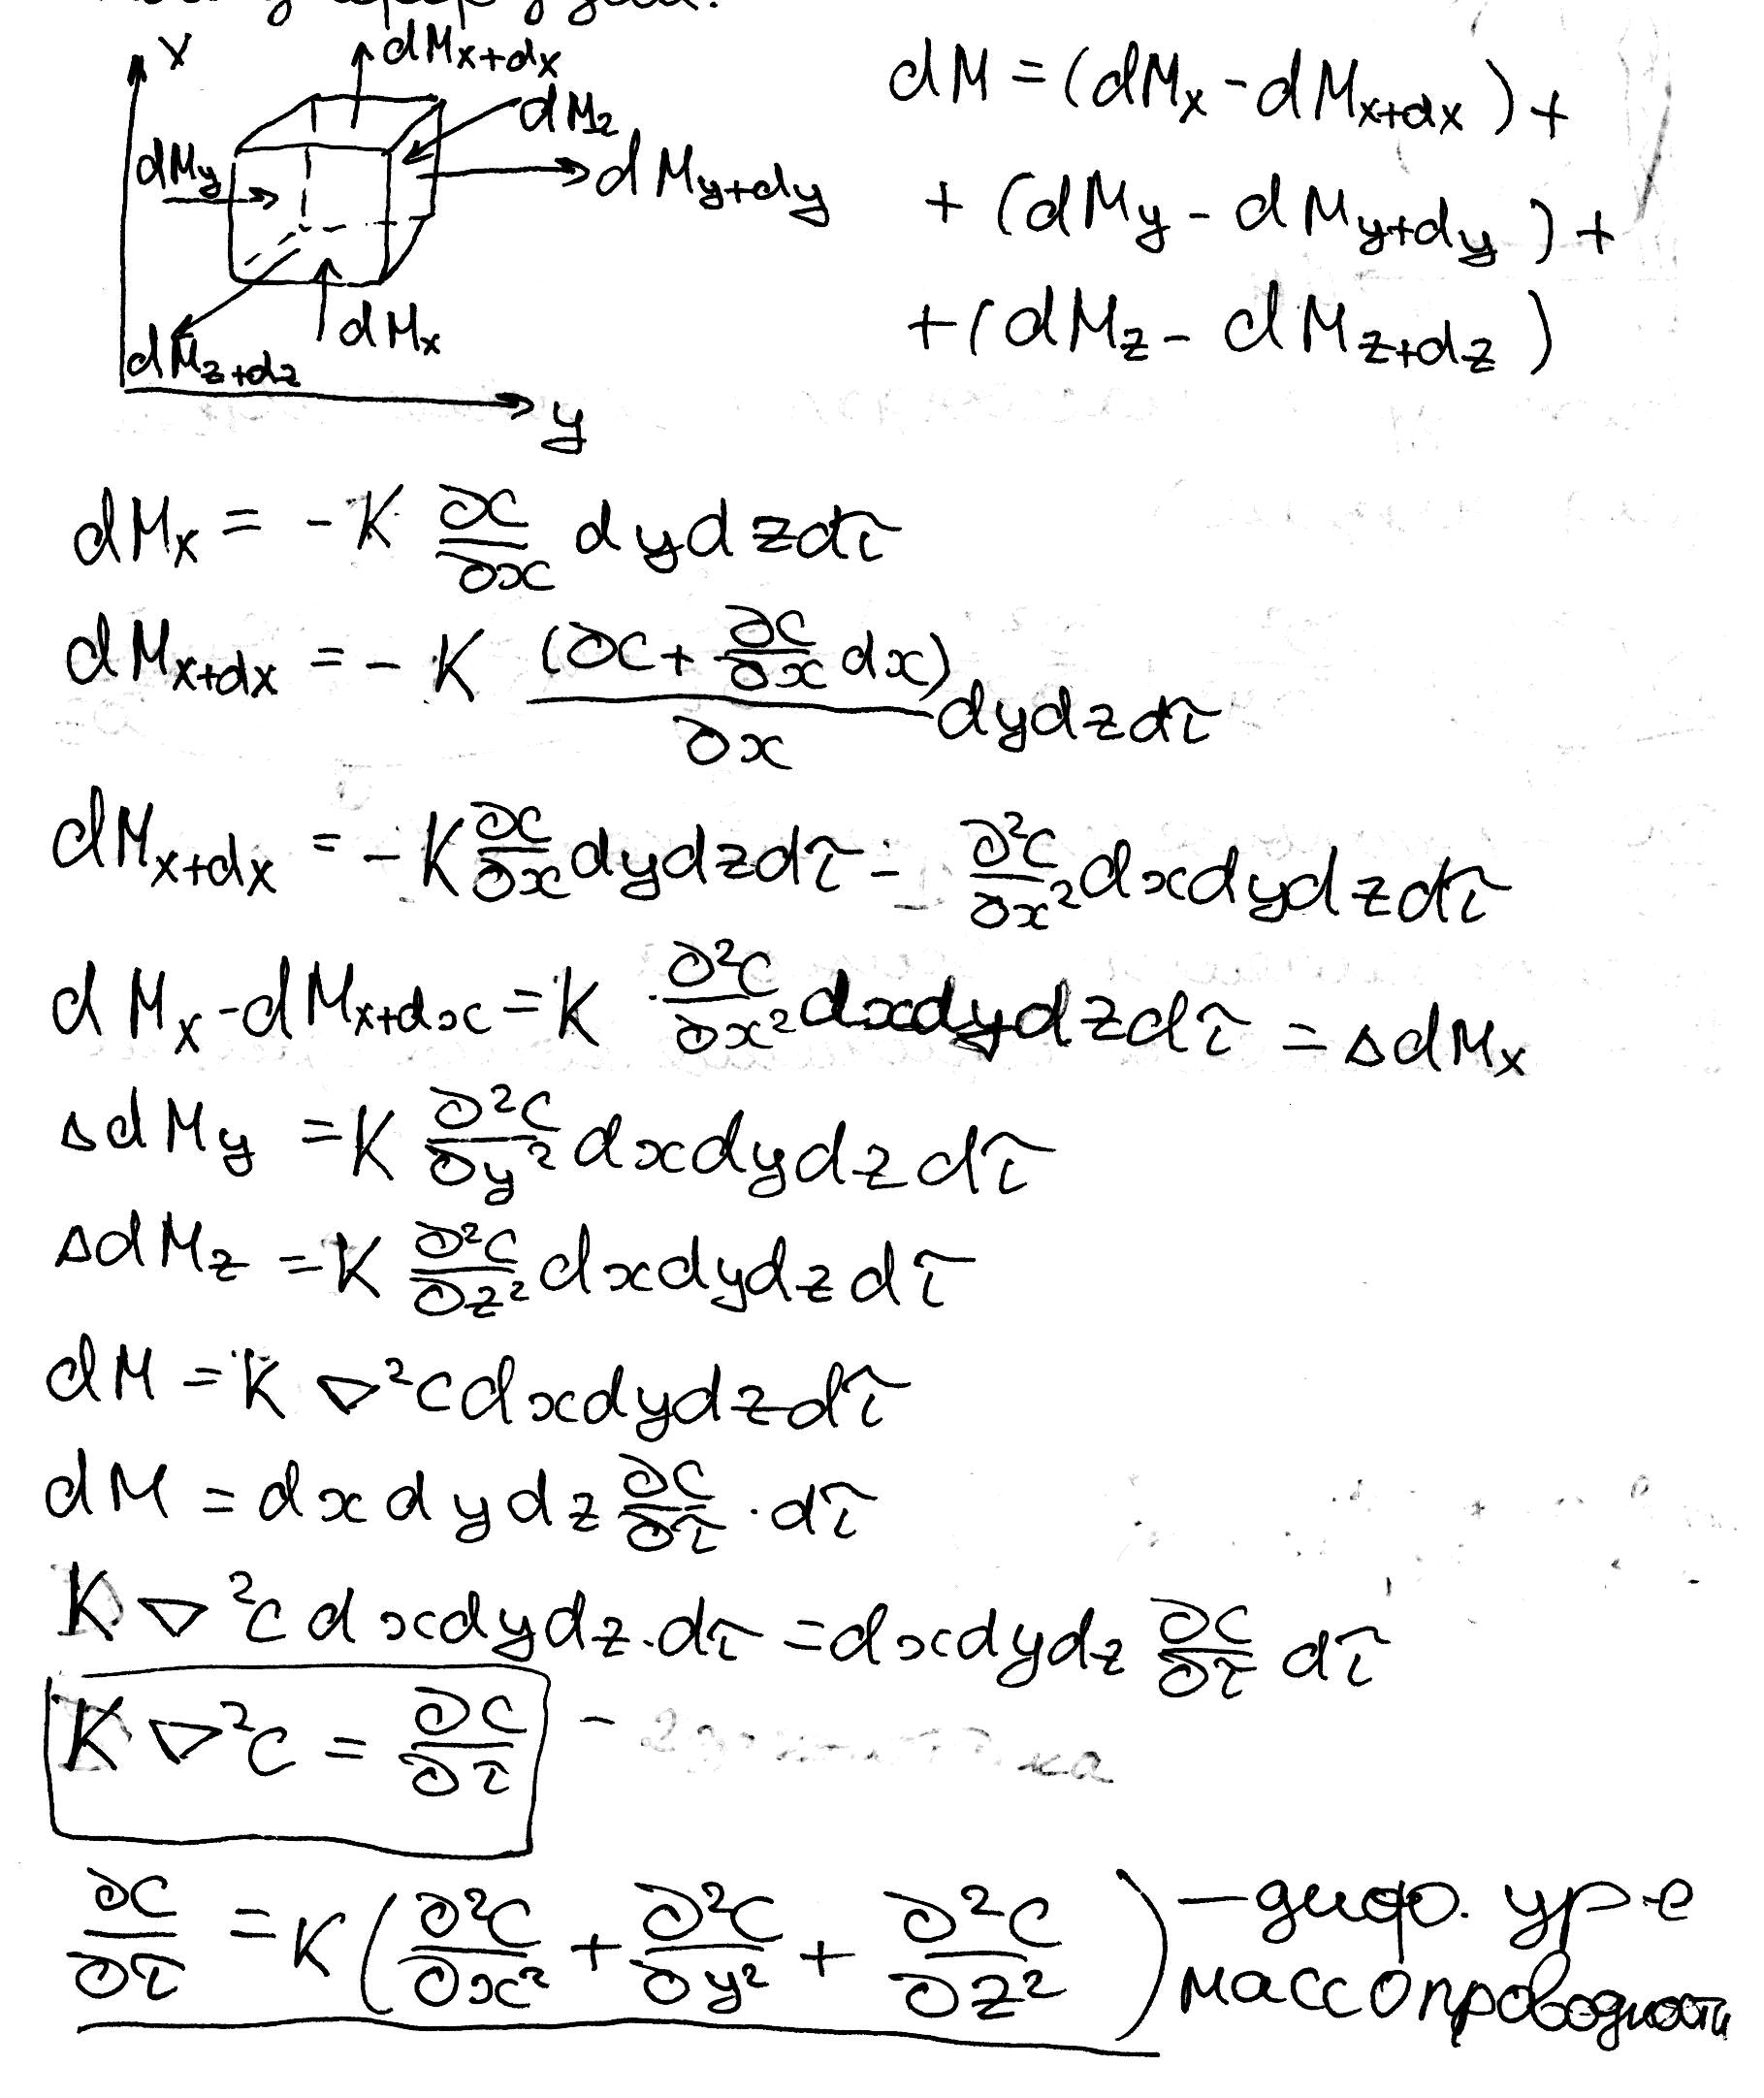 x
dMx+dx
dMz
dMy
dMy+dy
dMx
dMz+dz
y
dM = (dMx - dMx+dx) +
+ (dMy - dMy+dy) +
+ (dMz - dMz+dz)
dMx = - K ∂C/∂x dydzdτ
dMx+dx = - K (∂C + ∂C/∂x dx)/∂x dydzdτ
dMx+dx = - K ∂C/∂x dydzdτ - ∂²C/∂x² dxdydzdτ
dMx - dMx+dx = K ∂²C/∂x² dxdydzdτ = ΔdMx
ΔdMy = K ∂²C/∂y² dxdydzdτ
ΔdMz = K ∂²C/∂z² dxdydzdτ
dM = K ∇²C dxdydzdτ
dM = dxdydz ∂C/∂τ · dτ
K ∇²C dxdydz · dτ = dxdydz ∂C/∂τ dτ
K ∇²C = ∂C/∂τ -
∂C/∂τ = K (∂²C/∂x² + ∂²C/∂y² + ∂²C/∂z²) - диф. ур-е
массопроводности